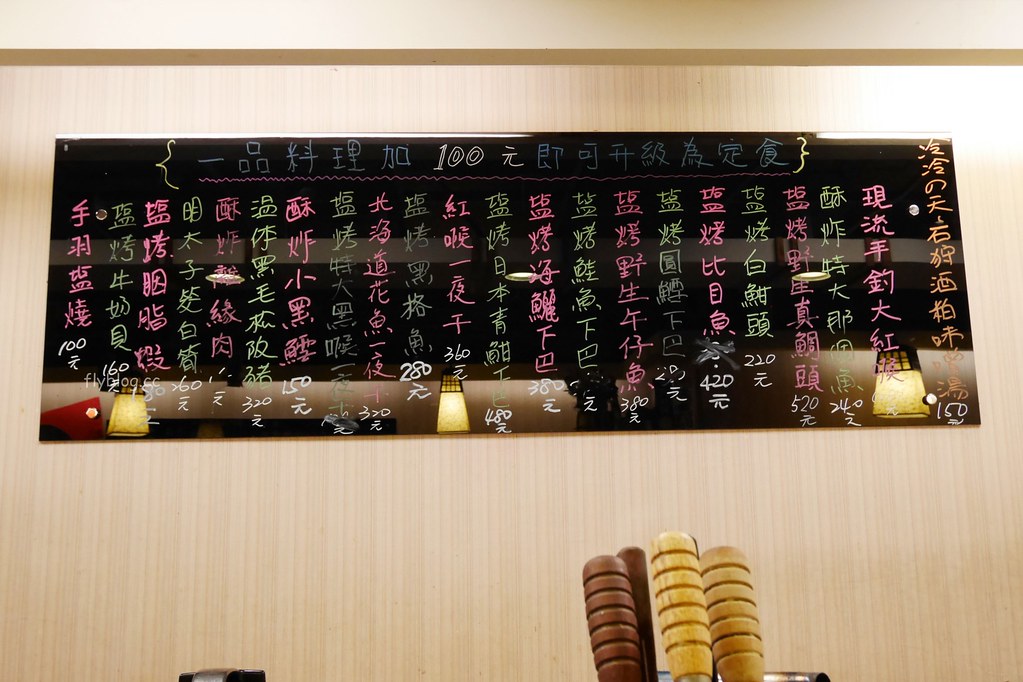 一品料理加100元即可升級為定食
冷冷の天石狩酒粕味噌湯150元
現流手釣大紅喉
酥炸特大那個魚240元
塩烤野生真鯛頭520元
塩烤白魽頭220元
塩烤比目魚420元
塩烤圓鱈下巴
塩烤野生午仔魚380元
塩烤鮭魚下巴
塩烤海鱺下巴380元
塩烤日本青魽下巴480元
紅喉一夜干360元
塩烤黑格魚280元
北海道花魚一夜干320元
塩烤特大黑喉一夜干
酥炸小黑鱈150元
温体黑毛菘阪豬320元
明太子茭白筍260元
酥炸緣肉
塩烤胭脂蝦
塩烤牛奶貝160元
手羽塩燒100元
flyblog.cc